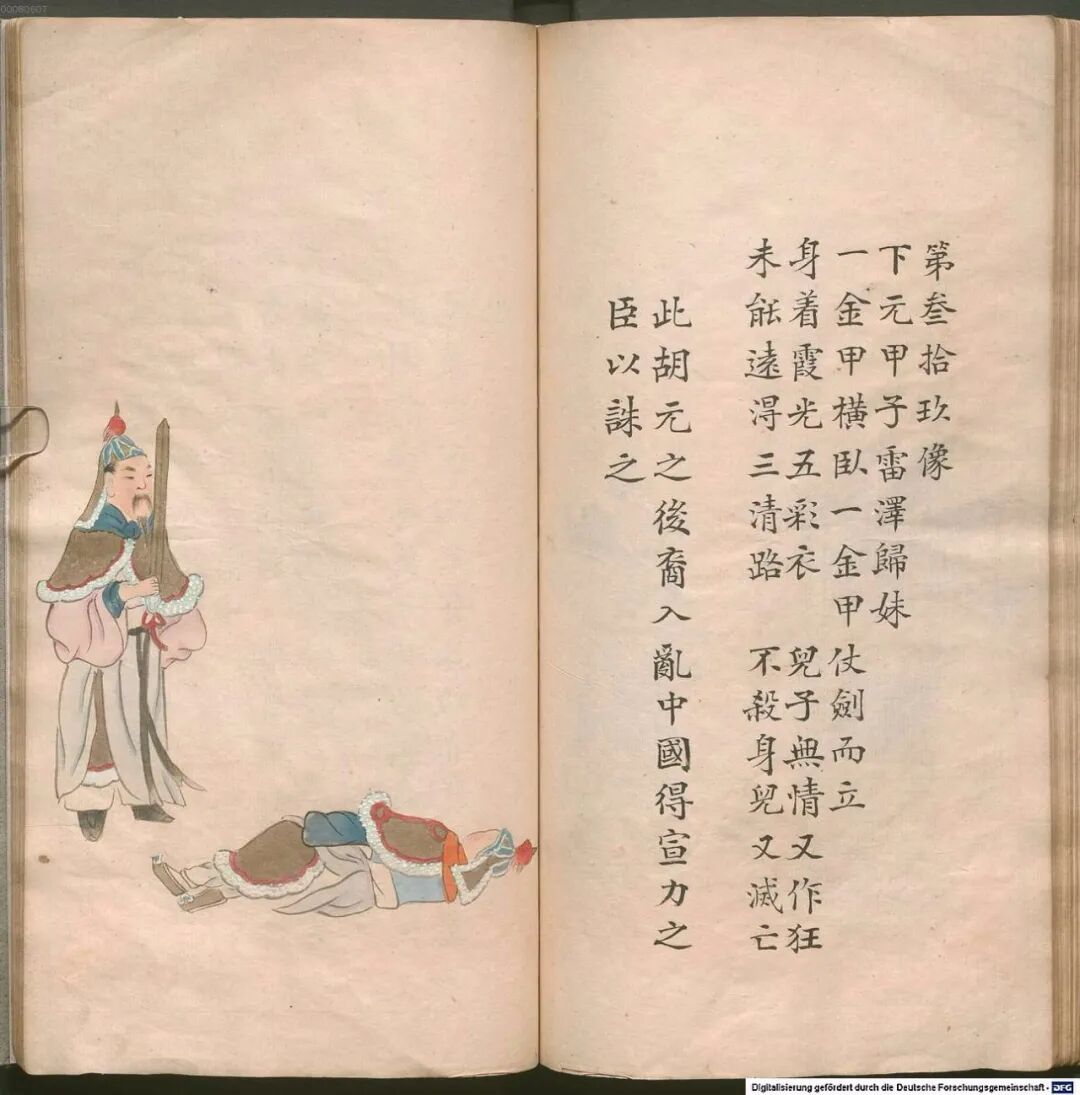 第叁拾玖像
下元甲子雷澤歸妹
一金甲橫臥一金甲仗劍而立
身着霞光五彩衣 兒子無情又作狂
未能遠得三清路 不殺身兒又滅亡
此胡元之後裔入亂中國得宣力之
臣以誅之
00080607
Digitalisierung gefördert durch die Deutsche Forschungsgemeinschaft - DFG